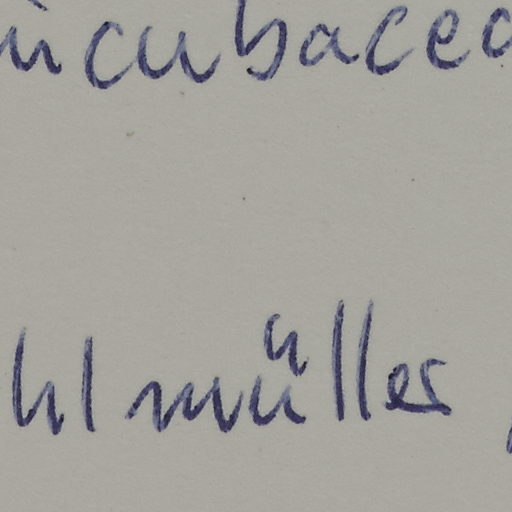 incubaceo
hlmüller